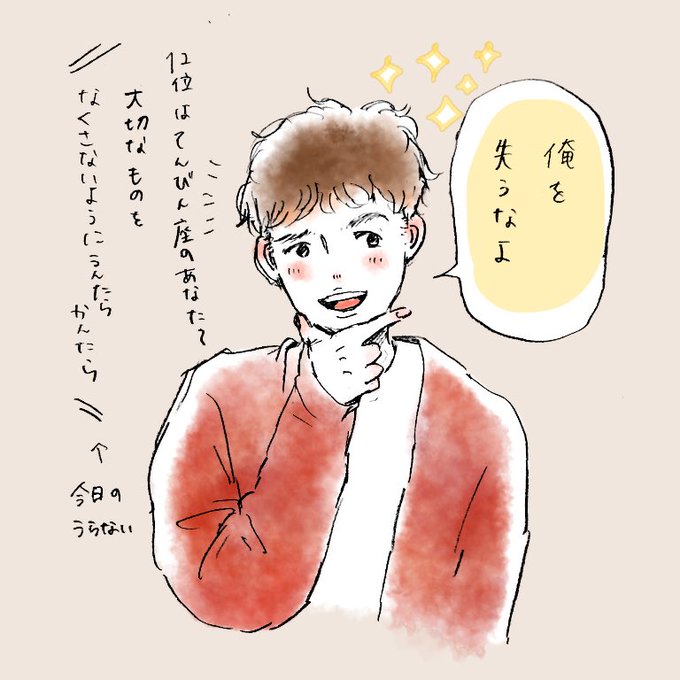 俺を
失うなよ
12位はてんびん座のあなた〜
大切なものを
なくさないようにうんたら
かんたら
↑
今日の
うらない